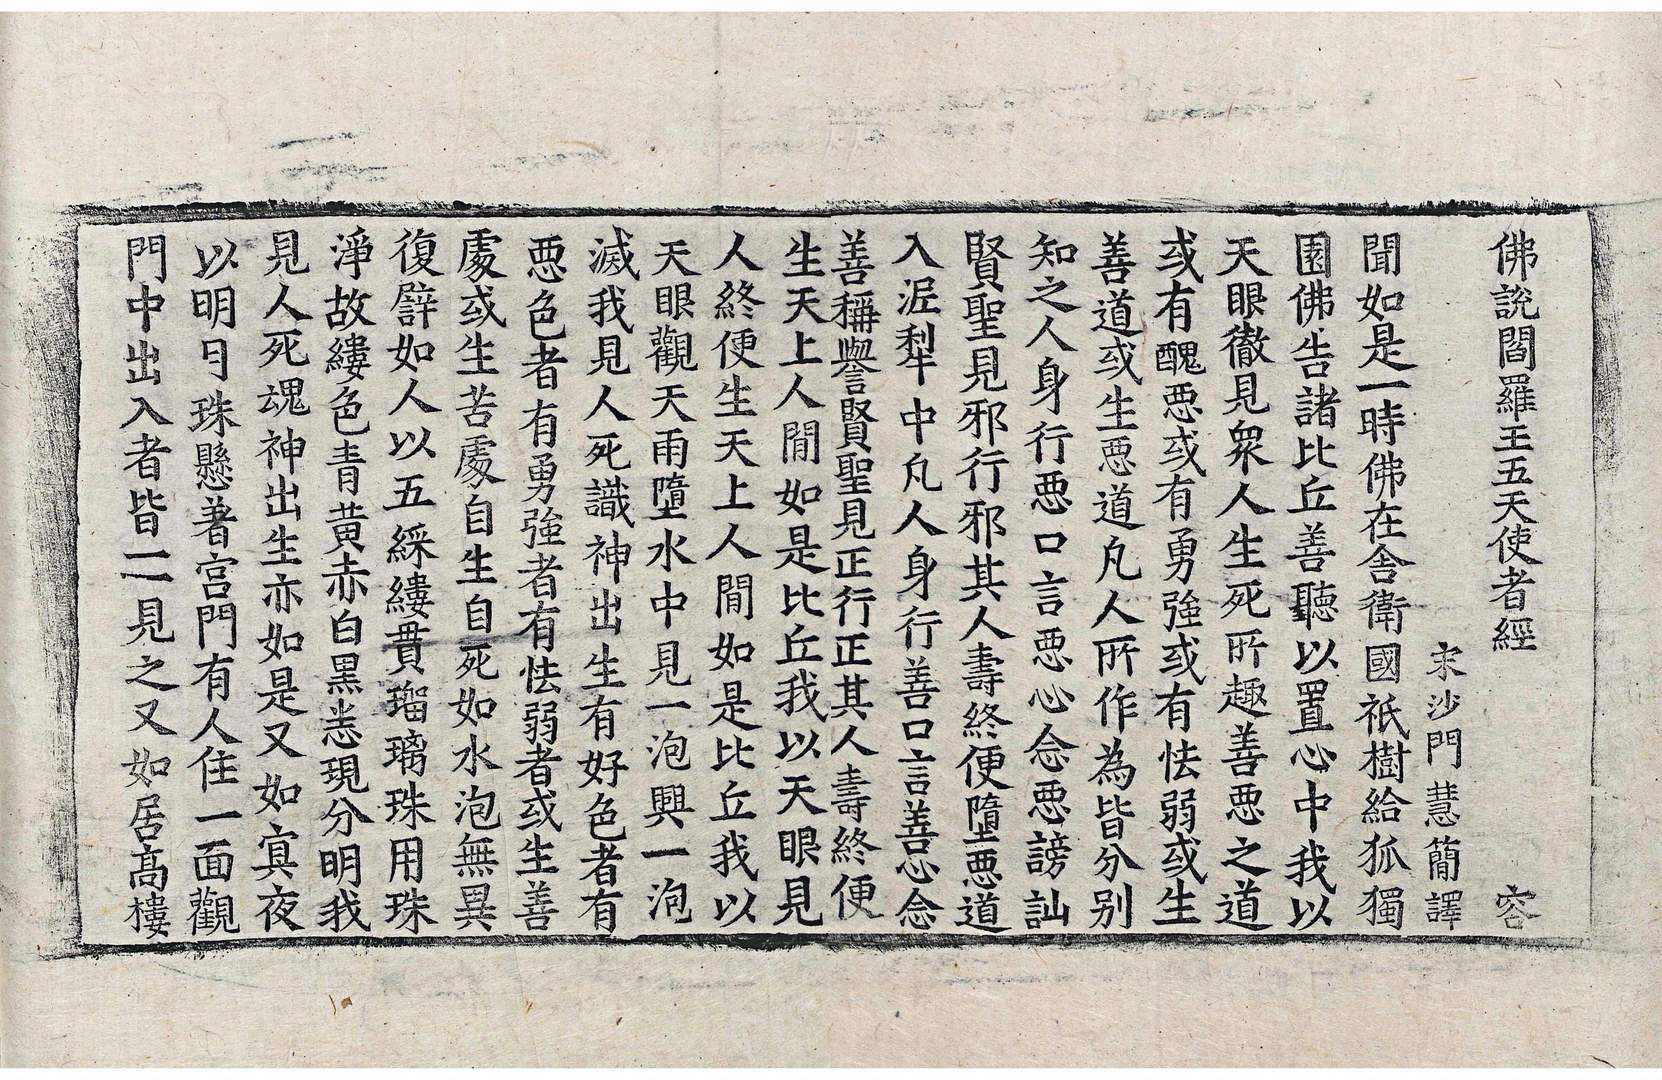 佛說閻羅王五天使者經 容
宋沙門慧簡譯
聞如是一時佛在舍衛國祇樹給孤獨
園佛告諸比丘善聽以置心中我以
天眼徹見衆人生死所趣善惡之道
或有醜惡或有勇強或有怯弱或生
善道或生惡道凡人所作為皆分別
知之人身行惡口言惡心念惡謗訕
賢聖見邪行邪其人壽終便墮惡道
入泥犁中凡人身行善口言善心念
善稱譽賢聖見正行正其人壽終便
生天上人間如是比丘我以天眼見
人終便生天上人間如是比丘我以
天眼觀天雨墮水中見一泡興一泡
滅我見人死識神出生有好色者有
惡色者有勇強者有怯弱者或生善
處或生苦處自生自死如水泡無異
復譬如人以五綵縷貫瑠璃珠用珠
淨故縷色青黃赤白黑悉現分明我
見人死魂神出生亦如是又如冥夜
以明月珠懸著宮門有人住一面觀
門中出入者皆一一見之又如居高樓